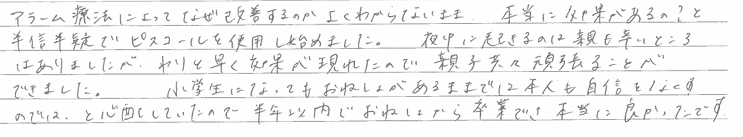 アラーム療法によってなぜ改善するのかよくわからないまま、本当に効果があるの？と
半信半疑でピスコールを使用し始めました。夜中に起きるのは親も辛いところ
はありましたが、わりと早く効果が現れたので親子共々頑張ることが
できました。小学生になってもおねしょがあるままでは本人も自信をなくす
のでは、と心配していたので半年以内でおねしょから卒業でき本当に良かったです。